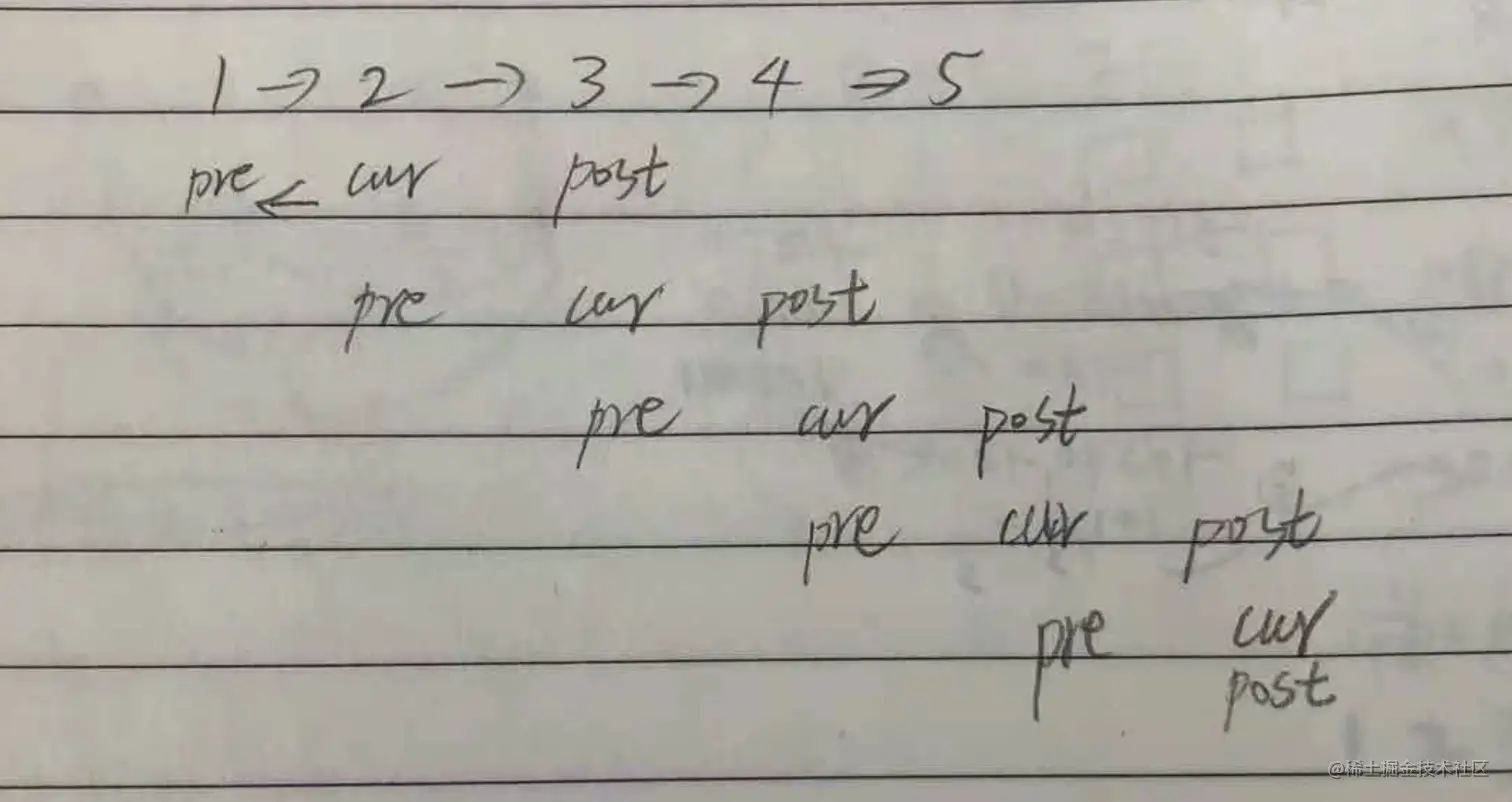 1 → 2 → 3 → 4 → 5
pre ← cur post
pre cur post
pre cur post
pre cur post
pre cur
post
@稀土掘金技术社区